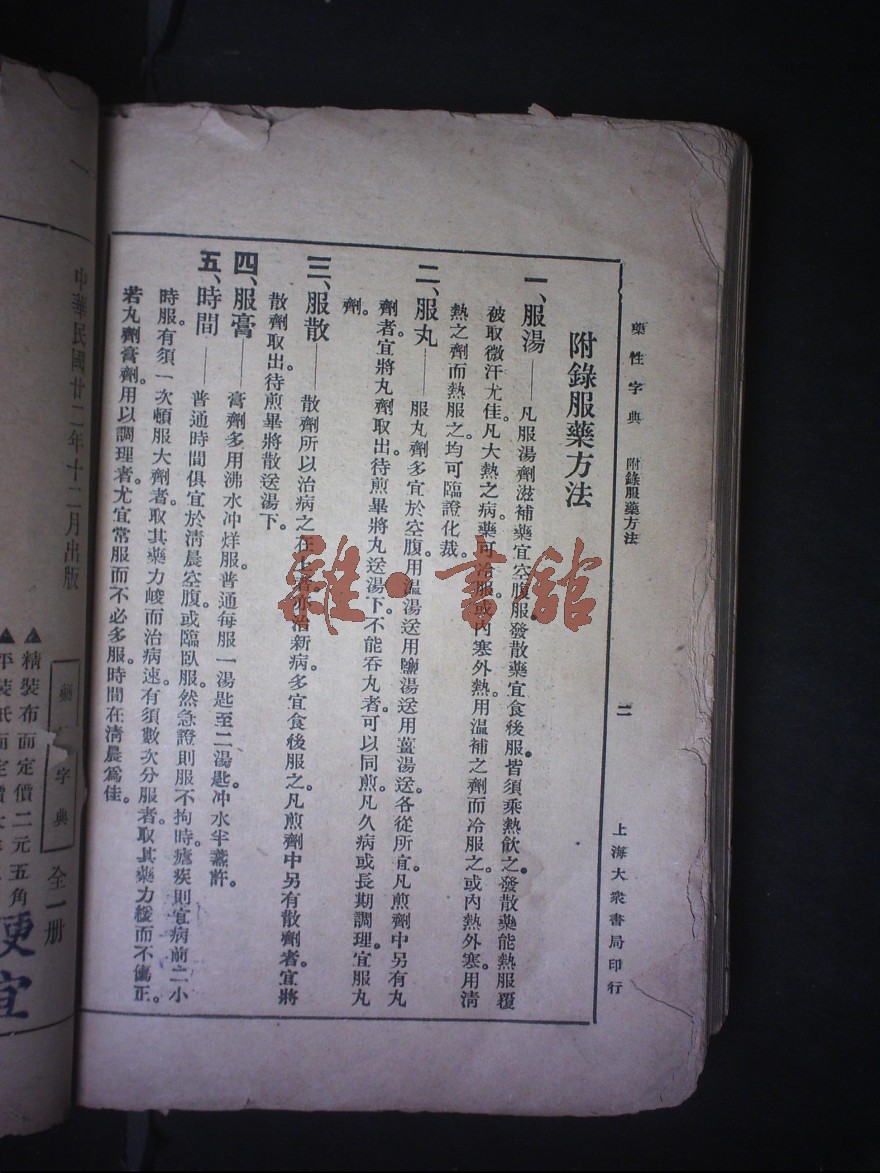 藥性字典 附錄服藥方法
二
上海大衆書局印行
附錄服藥方法
一、服湯——凡服湯劑滋補藥宜空腹服。發散藥宜食後服。皆須乘熱飲之。發散藥能熱服覆
被取微汗尤佳。凡大熱之病藥可冷服。或內寒外熱。用溫補之劑而冷服之。或內熱外寒。用清
熱之劑而熱服之。均可臨證化裁。
二、服丸——服丸劑多宜於空腹。用溫湯送。用鹽湯送。用薑湯送。各從所宜。凡煎劑中另有丸
劑者。宜將丸劑取出。待煎畢將丸送湯下。不能吞丸者。可以同煎。凡久病或長期調理。宜服丸
劑。
三、服散——散劑所以治病之在上者。亦治新病。多宜食後服之。凡煎劑中另有散劑者。宜將
散劑取出。待煎畢將散送湯下。
四、服膏——膏劑多用沸水冲烊服。普通每服一湯匙至二湯匙。冲水半盞許。
五、時間——普通時間俱宜於清晨空腹。或臨臥服。然急證則服不拘時。瘧疾則宜病前二小
時服。有須一次頓服大劑者。取其藥力峻而治病速。有須數次分服者。取其藥力緩而不傷正。
若丸劑膏劑。用以調理者。尤宜常服而不必多服。時間在清晨爲佳。
雜·書館
中華民國廿二年十二月出版
字典 全一册
▲精裝布面定價二元五角
便宜